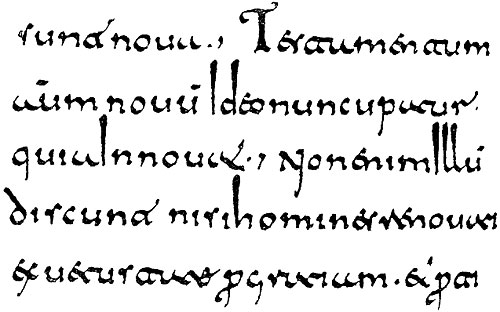 sunt noua., Testamentum
aūm nouū Ideo nuncupatur.
quia Innouat., Non enim Illū
discunt nisi homines renouati
ex uetustate ꝑ gratiam . et ꝑti